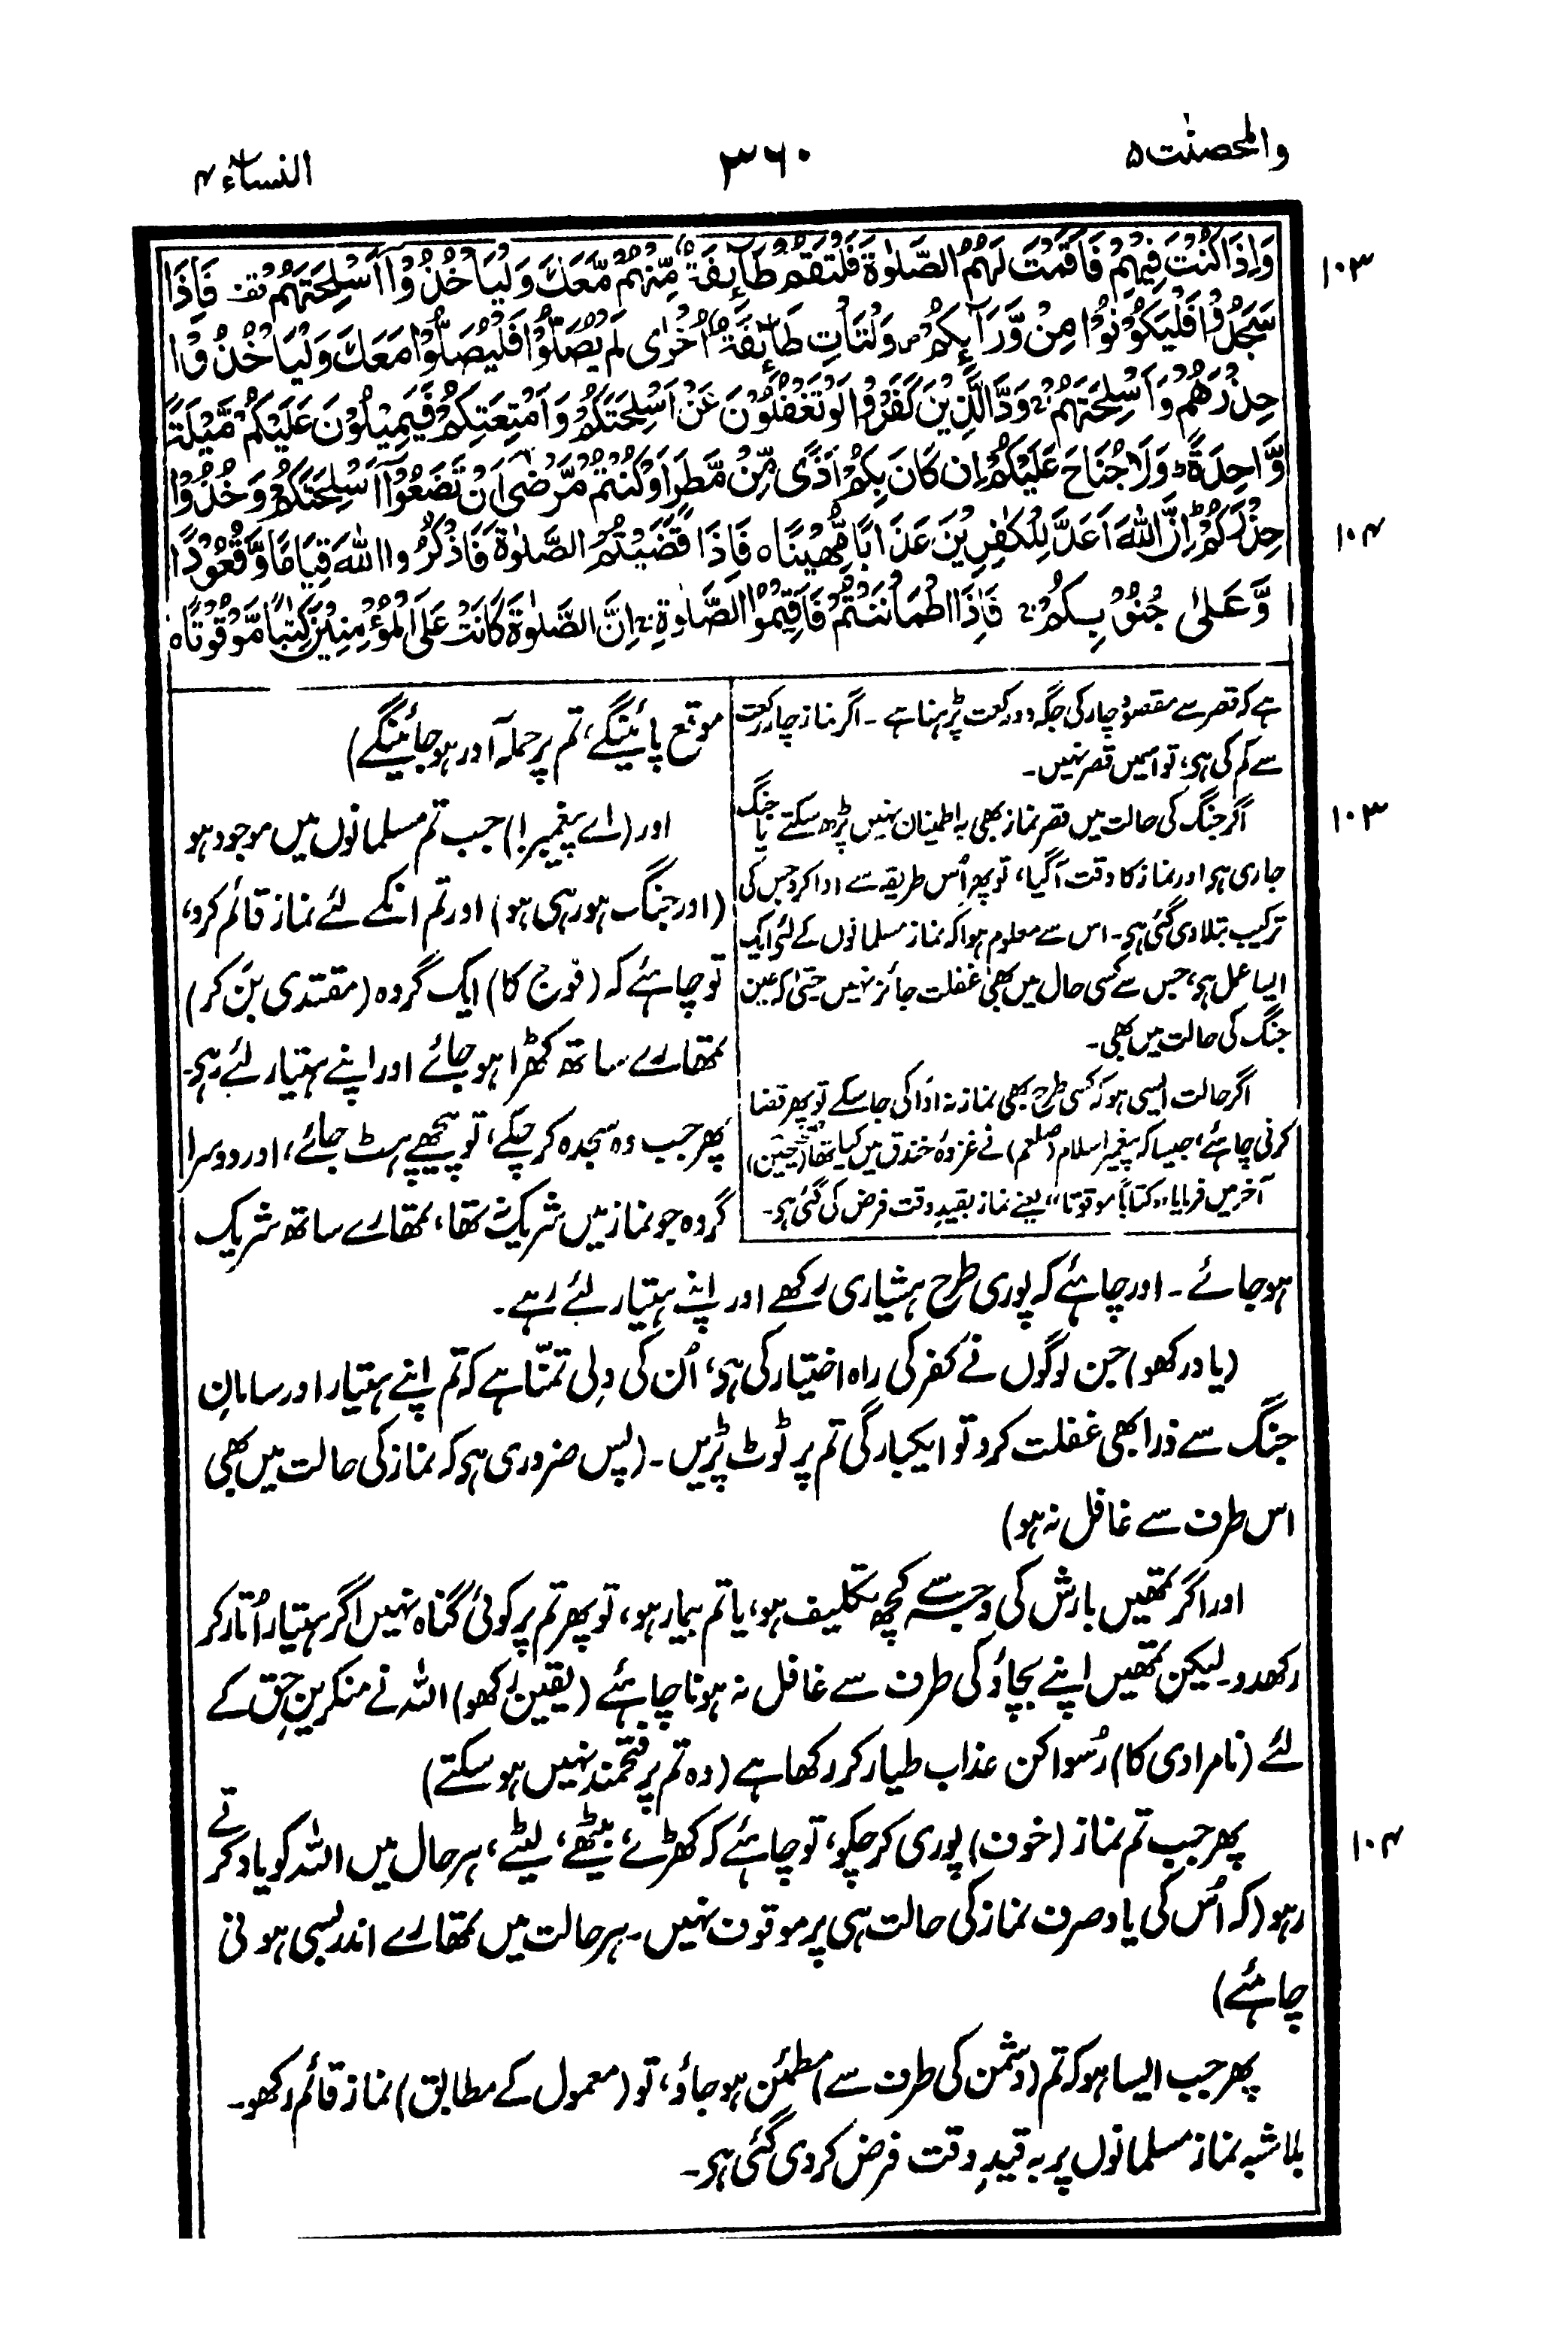 والمحصنٰت ۵
۳۶۰
النساء ۴
۱۰۳
وَاِذَا كُنْتَ فِيْهِمْ فَاَقَمْتَ لَهُمُ الصَّلٰوةَ فَلْتَقُمْ طَآئِفَةٌ مِّنْهُمْ مَّعَكَ وَلْيَاْخُذُوْٓا اَسْلِحَتَهُمْ فَاِذَا
سَجَدُوْا فَلْيَكُوْنُوْا مِنْ وَّرَآئِكُمْ وَلْتَاْتِ طَآئِفَةٌ اُخْرٰى لَمْ يُصَلُّوْا فَلْيُصَلُّوْا مَعَكَ وَلْيَاْخُذُوْا
حِذْرَهُمْ وَاَسْلِحَتَهُمْ وَدَّ الَّذِيْنَ كَفَرُوْا لَوْ تَغْفُلُوْنَ عَنْ اَسْلِحَتِكُمْ وَاَمْتِعَتِكُمْ فَيَمِيْلُوْنَ عَلَيْكُمْ مَّيْلَةً
وَّاحِدَةً وَلَا جُنَاحَ عَلَيْكُمْ اِنْ كَانَ بِكُمْ اَذًى مِّنْ مَّطَرٍ اَوْ كُنْتُمْ مَّرْضٰٓى اَنْ تَضَعُوْٓا اَسْلِحَتَكُمْ وَخُذُوْا
۱۰۴
حِذْرَكُمْ اِنَّ اللّٰهَ اَعَدَّ لِلْكٰفِرِيْنَ عَذَابًا مُّهِيْنًا ه فَاِذَا قَضَيْتُمُ الصَّلٰوةَ فَاذْكُرُوا اللّٰهَ قِيَامًا وَّقُعُوْدًا
وَّعَلٰى جُنُوْبِكُمْ فَاِذَا اطْمَاْنَنْتُمْ فَاَقِيْمُوا الصَّلٰوةَ اِنَّ الصَّلٰوةَ كَانَتْ عَلَى الْمُؤْمِنِيْنَ كِتٰبًا مَّوْقُوْتًا ه
ہے کہ قصر سے مقصود چار کی جگہ دو رکعت پڑہنا ہے۔ اگر نماز چار رکعت
سے کم کی ہی، تو اسمیں قصر نہیں۔
اگر جنگ کی حالت میں قصر نماز بھی بہ اطمینان نہیں پڑھ سکتے یا جنگ
جاری ہو اور نماز کا وقت آگیا، تو پھر اُس طریقہ سے ادا کرو جس کی
ترکیب بتلا دی گئی ہی۔ اس سے معلوم ہوا کہ نماز مسلمانوں کے لئے ایک
ایسا عمل ہی، جس سے کسی حال میں بھی غفلت جائز نہیں حتیٰ کہ عین
جنگ کی حالت میں بھی۔
اگر حالت ایسی ہو کہ کسی طرح بھی نماز نہ ادا کی جا سکے تو پھر قضا
کرنی چاہئے، جیسا کہ پیغمبر اسلام (صلعم) نے غزوہ خندق میں کیا تھا (صحیحین)
آخر میں فرمایا "کتاباً موقوتا" یعنے نماز بقید وقت فرض کی گئی ہی۔
موقع پائینگے، تم پر حملہ آور ہو جائینگے)
۱۰۳
اور (اے پیغمبر!) جب تم مسلمانوں میں موجود ہو
(اور جنگ ہو رہی ہو) اور تم انکے لئے نماز قائم کرو،
تو چاہئے کہ (فوج کا) ایک گروہ (مقتدی بن کر)
تمھارے ساتھ کھڑا ہو جائے اور اپنے ہتیار لئے رہی۔
پھر جب وہ سجدہ کر چکے، تو پیچھے ہٹ جائے، اور دوسرا
گروہ جو نماز میں شریک نہ تھا، تمھارے ساتھ شریک
ہو جائے۔ اور چاہئے کہ پوری طرح ہشیاری رکھے اور اپنے ہتیار لئے رہے۔
(یاد رکھو) جن لوگوں نے کفر کی راہ اختیار کی ہی، اُن کی دلی تمنّا ہے کہ تم اپنے ہتیار اور سامانِ
جنگ سے ذرا بھی غفلت کرو تو ایکبارگی تم پر ٹوٹ پڑیں۔ (پس ضروری ہی کہ نماز کی حالت میں بھی
اس طرف سے غافل نہ ہو)
اور اگر تمھیں بارش کی وجہ سے کچھ تکلیف ہو، یا تم بیمار ہو، تو پھر تم پر کوئی گناہ نہیں اگر ہتیار اُتار کر
رکھدو۔ لیکن تمھیں اپنے بچاؤ کی طرف سے غافل نہ ہونا چاہئے (یقین رکھو) اللہ نے منکرینِ حق کے
لئے (نامرادی کا) رُسوا کن عذاب طیار کر رکھا ہے (وہ تم پر فتحمند نہیں ہو سکتے)
۱۰۴
پھر جب تم نماز (خوف) پوری کر چکو، تو چاہئے کہ کھڑے، بیٹھے، لیٹے، ہر حال میں اللہ کو یاد کرتے
رہو (کہ اُس کی یاد صرف نماز کی حالت ہی پر موقوف نہیں۔ ہر حالت میں تمھارے اندر بسی ہونی
چاہئے)
پھر جب ایسا ہو کہ تم (دشمن کی طرف سے) مطمئن ہو جاؤ، تو (معمول کے مطابق) نماز قائم رکھو۔
بلاشبہ نماز مسلمانوں پر بہ قیدِ وقت فرض کر دی گئی ہی۔